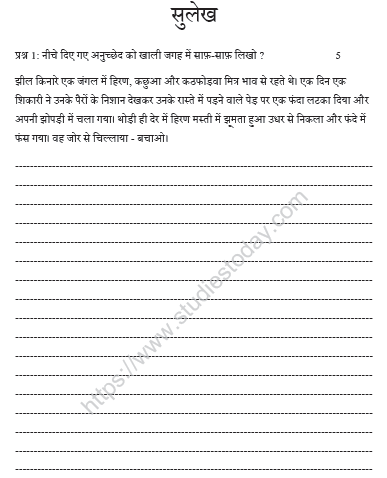 सुलेख
प्रश्न 1: नीचे दिए गए अनुच्छेद को खाली जगह में साफ़-साफ़ लिखो ? 5
झील किनारे एक जंगल में हिरण, कछुआ और कठफोड़वा मित्र भाव से रहते थे। एक दिन एक
शिकारी ने उनके पैरों के निशान देखकर उनके रास्ते में पड़ने वाले पेड़ पर एक फंदा लटका दिया और
अपनी झोपड़ी में चला गया। थोड़ी ही देर में हिरण मस्ती में झूमता हुआ उधर से निकला और फंदे में
फंस गया। वह जोर से चिल्लाया - बचाओ।
http://www.studiestoday.com